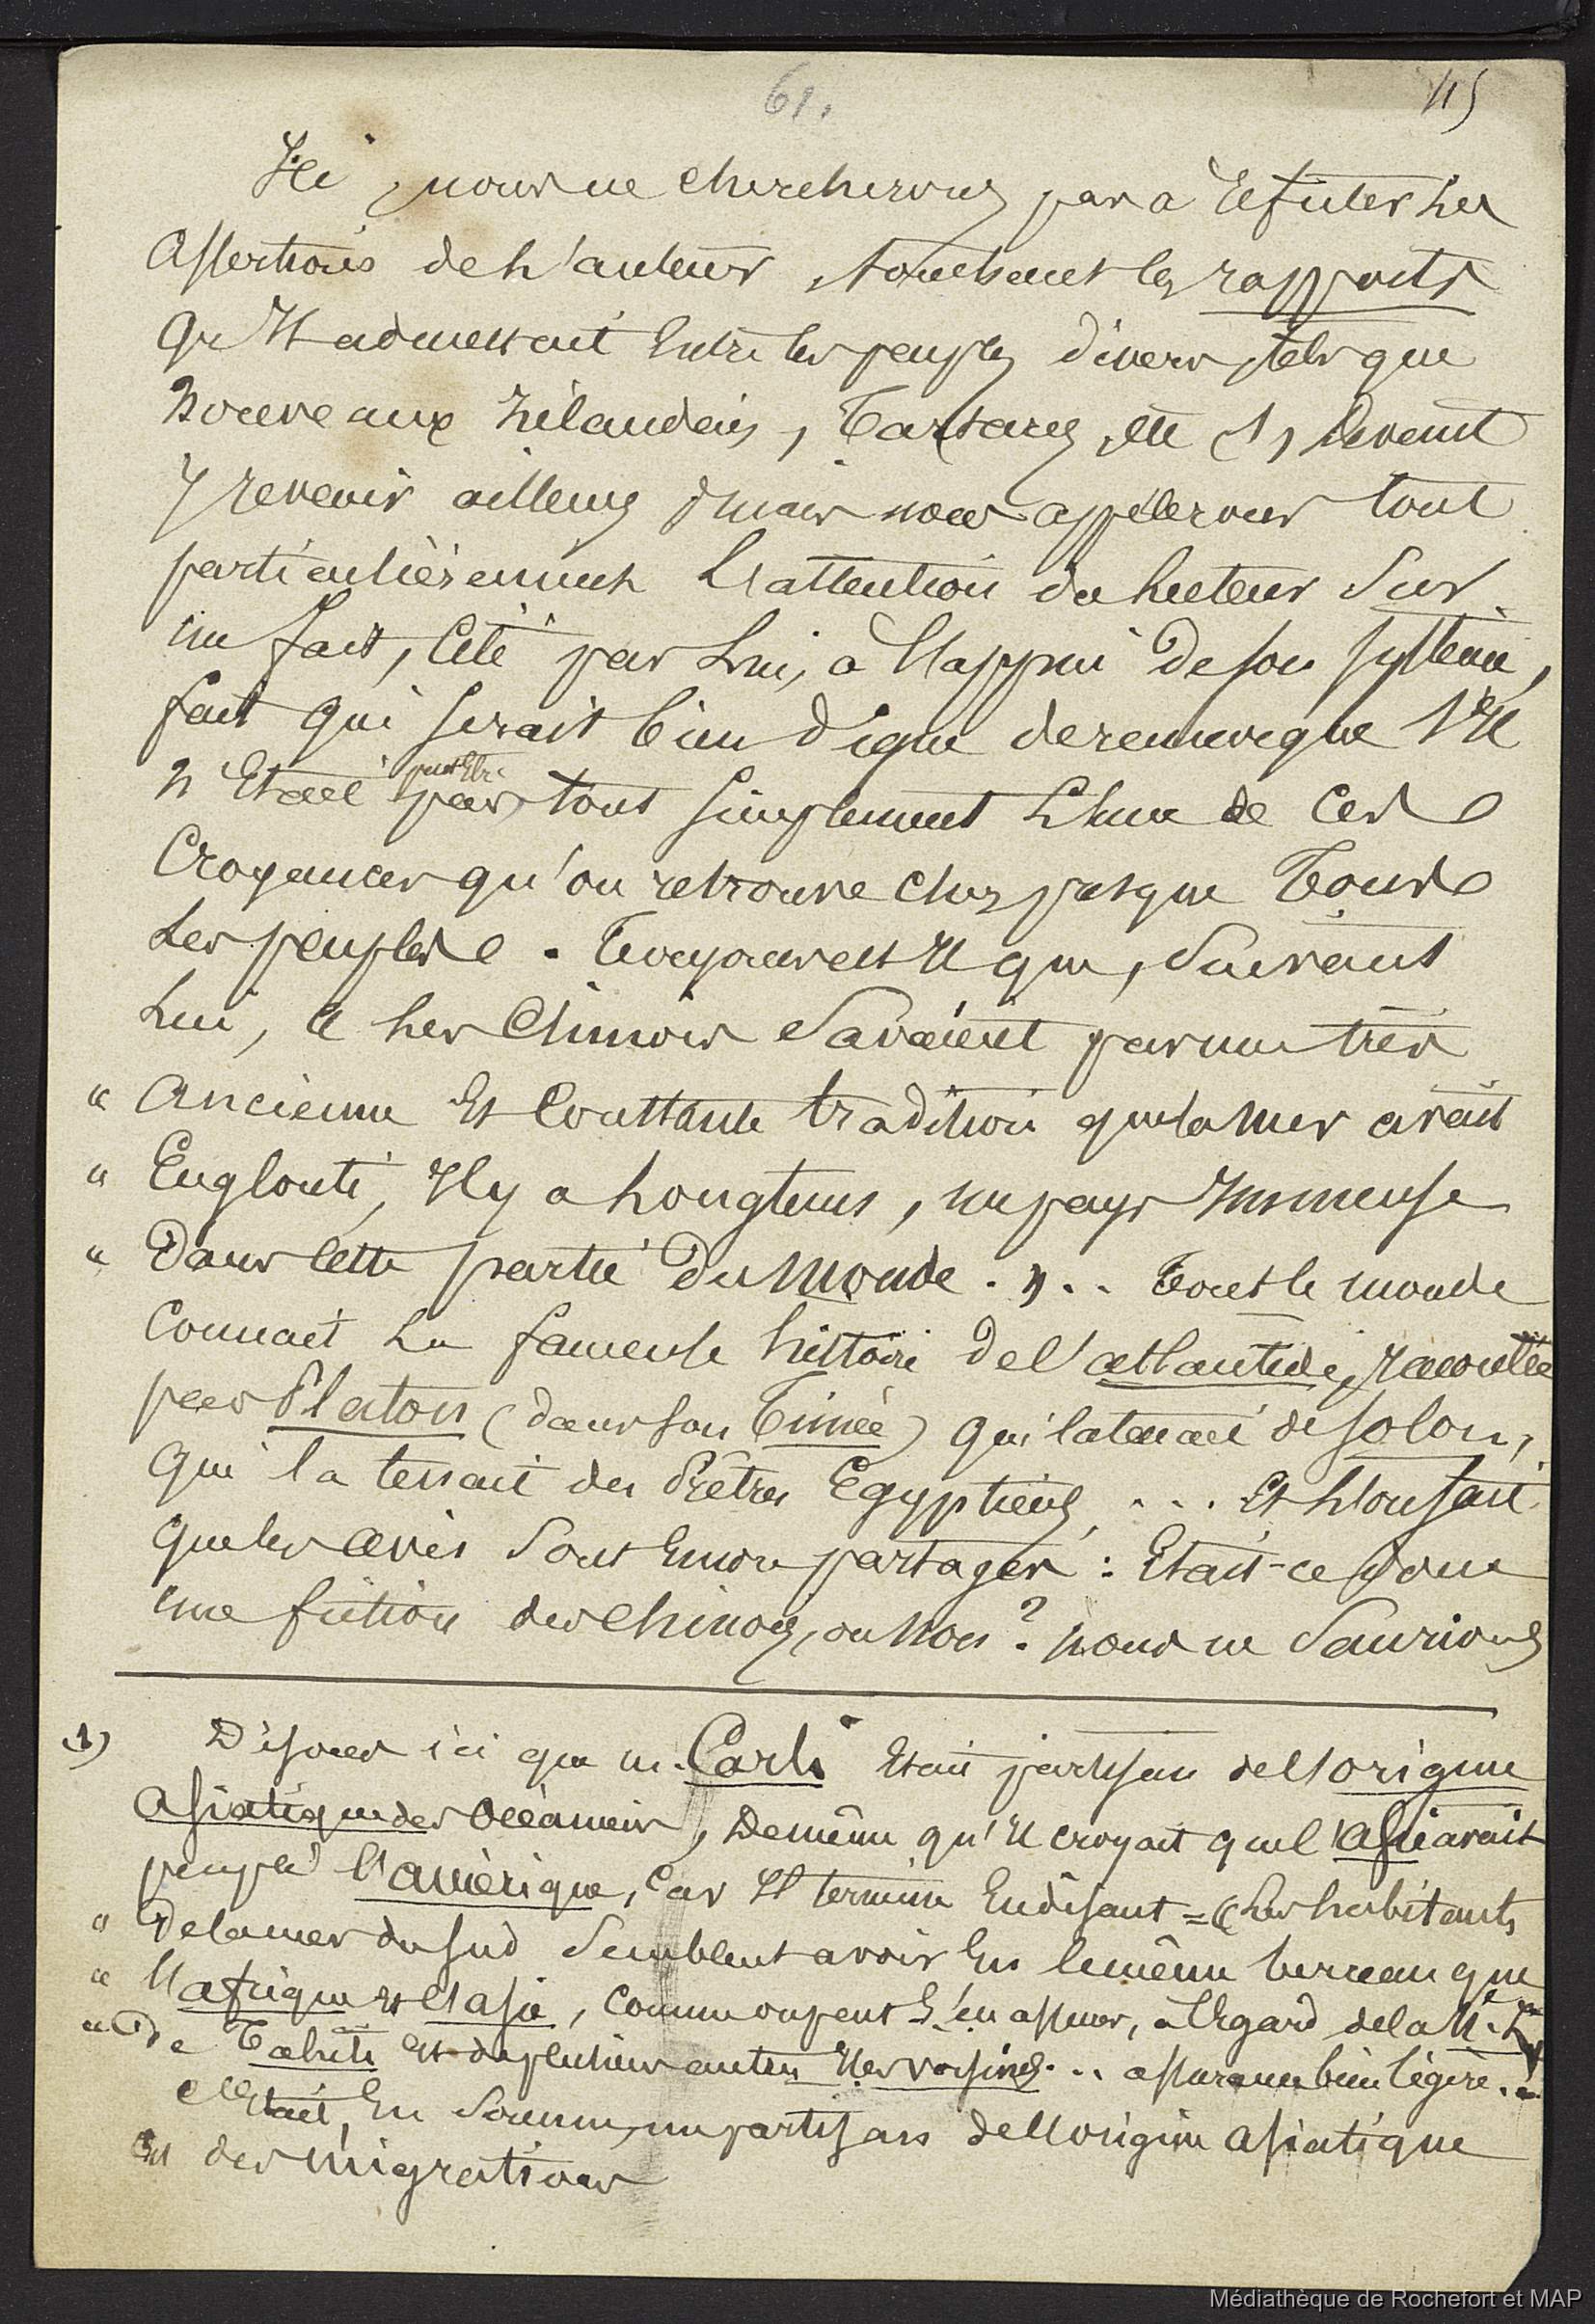 61.
115
Ici, nous ne chercherons pas à réfuter les
assertions de l'auteur, touchant les rapports
qu'Il admettait Entre les peuples divers, tels que
Nouveaux Zélandais, Tartares, etc (1), devant
y revenir ailleurs ; mais nous appelerons tout
particulièrement L'attention du Lecteur Sur
un fait, Cité par Lui, à l'appui de son système,
fait qui serait bien digne de remarque s'Il
n'Etait peut Etre pas tout simplement L'une de Ces
Croyances qu'on retrouve chez presque Tous
Les peuples. Croyait Il que, Suivant
Lui, « Les Chinois Savaient par une très
« Ancienne Et Constante tradition que la Mer avait
« Englouti, Il y a Longtems, un pays Immense
« Dans Cette partie du Monde. » .. Tout le monde
Connait La fameuse histoire de l'atlantide, racontée
par Platon (dans son Timée) qui la tenait de Solon,
qui la tenait des Prêtres Egyptiens, ... Et L'on sait
que les avis Sont Encore partagés : Etait-ce donc
une fiction des Chinois, ou Non ? nous ne Saurions
(1) Disons ici que m. Carli Etait partisan de l'origine
asiatique des Océaniens, De même qu'Il croyait que l'asie avait
peuplé l'amérique, Car Il termine En disant = « Les habitants
« De la mer du sud Semblent avoir Eu le même berceau que
« l'afrique Et l'asie, Comme on peut S'en assurer, à l'Egard de la Nlle. Zde,
« De Tahiti Et de plusieurs autres Iles voisines. .. assurance bien légère. ..
C'Etait, En Somme, un partisan de l'origine asiatique
Et des migrations
Médiathèque de Rochefort et MAP